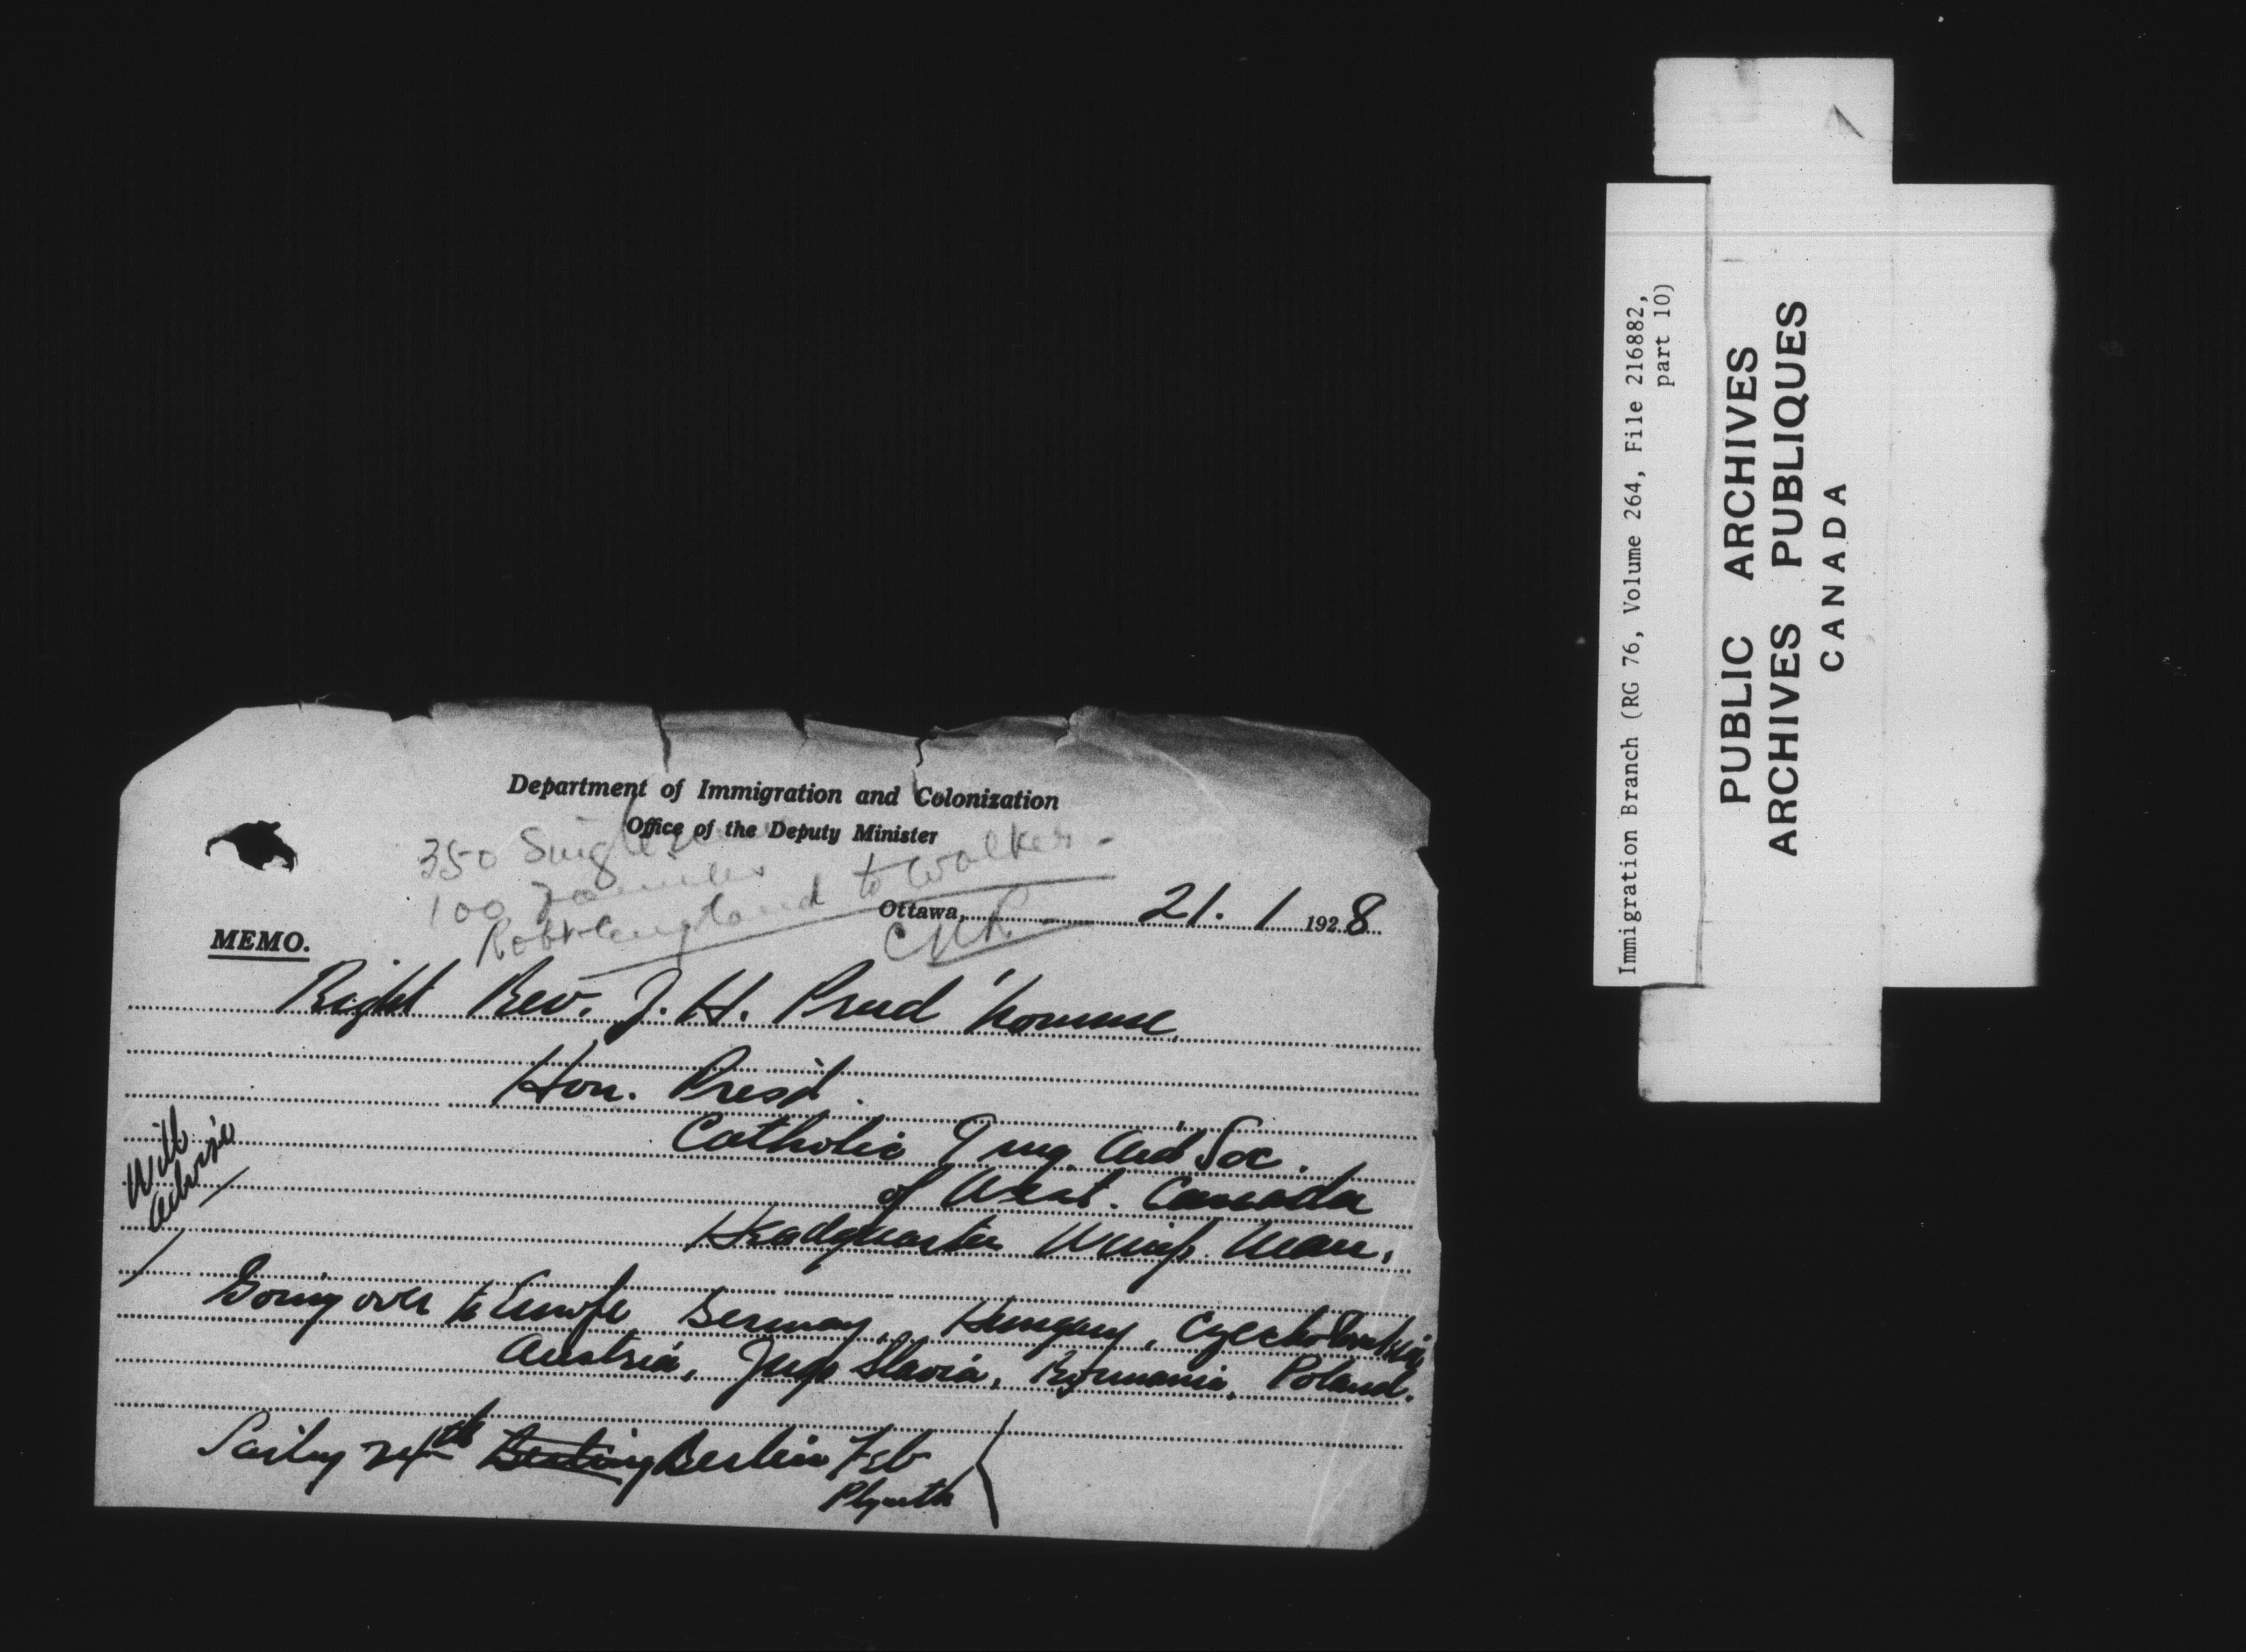 Department of Immigration and Colonization
Office of the Deputy Minister
350 Single
100 Families
to Walker -
CNR -
Ottawa, 21. 1 1928
MEMO.
Right Rev. J. H. Prud'homme,
Hon. Presd.
Catholic Img. Aid Soc.
of West. Canada
Headquarters Winip. Man.
Will
advise
Going over to Europe Germany, Hungary, Czechoslovakia,
Austria, Jugo Slavia, Roumania, Poland.
Sailing 24th Berlin Feb
Plymth
Immigration Branch (RG 76, Volume 264, File 216882,
part 10)
PUBLIC ARCHIVES
ARCHIVES PUBLIQUES
CANADA